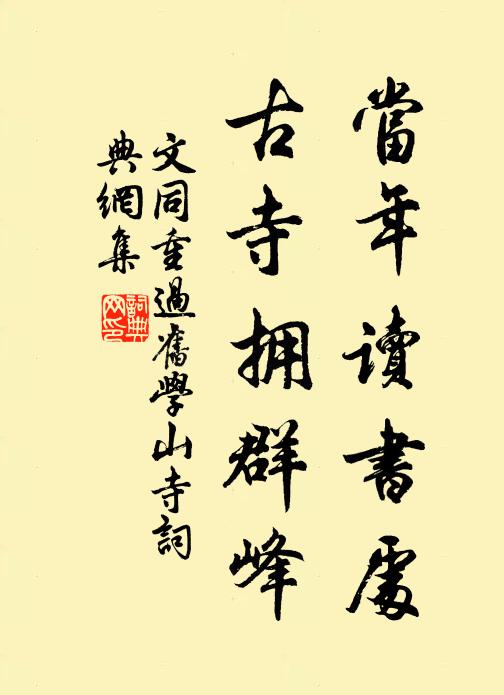 當年讀書處
古寺拥群峰
文同重過舊學山寺詞
典網集
詞典網印